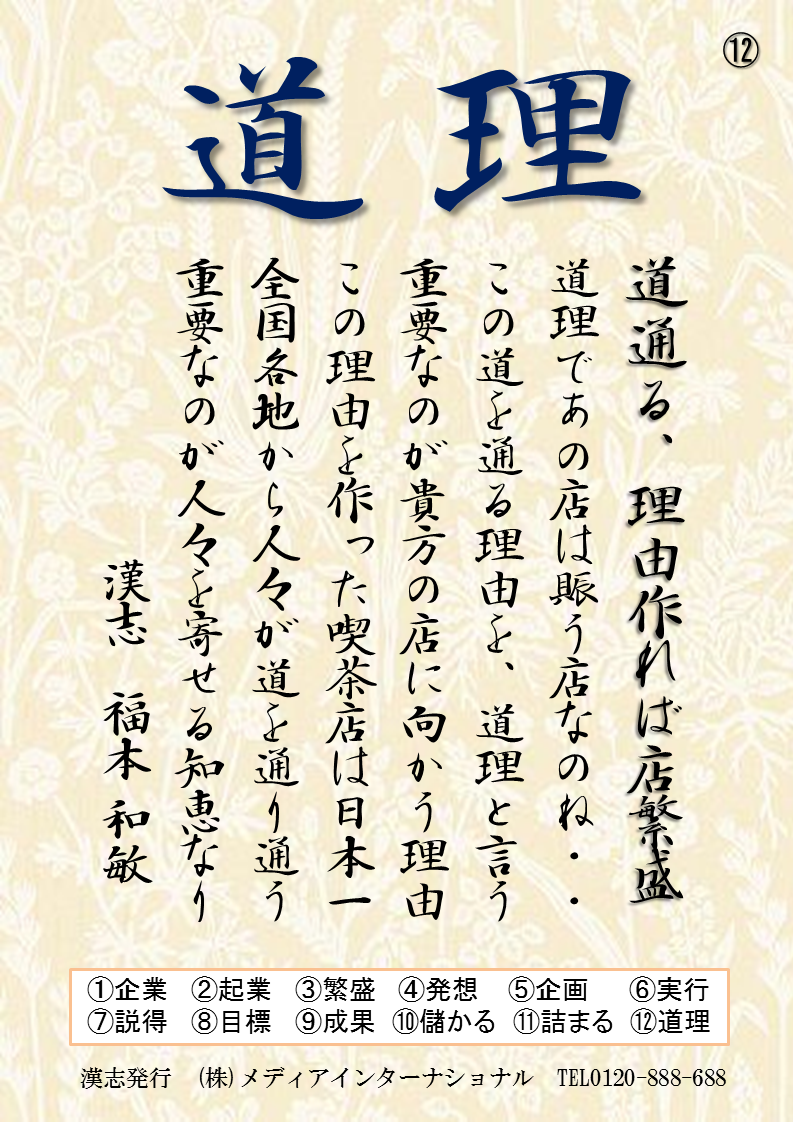 ⑫
道理
道通る、理由作れば店繁盛
道理であの店は賑う店なのね・・
この道を通る理由を、道理と言う
重要なのが貴方の店に向かう理由
この理由を作った喫茶店は日本一
全国各地から人々が道を通り通う
重要なのが人々を寄せる知恵なり
漢志　福本和敏
①企業 ②起業 ③繁盛 ④発想 ⑤企画 ⑥実行
⑦説得 ⑧目標 ⑨成果 ⑩儲かる ⑪詰まる ⑫道理
漢志発行　(株)メディアインターナショナル　TEL0120-888-688